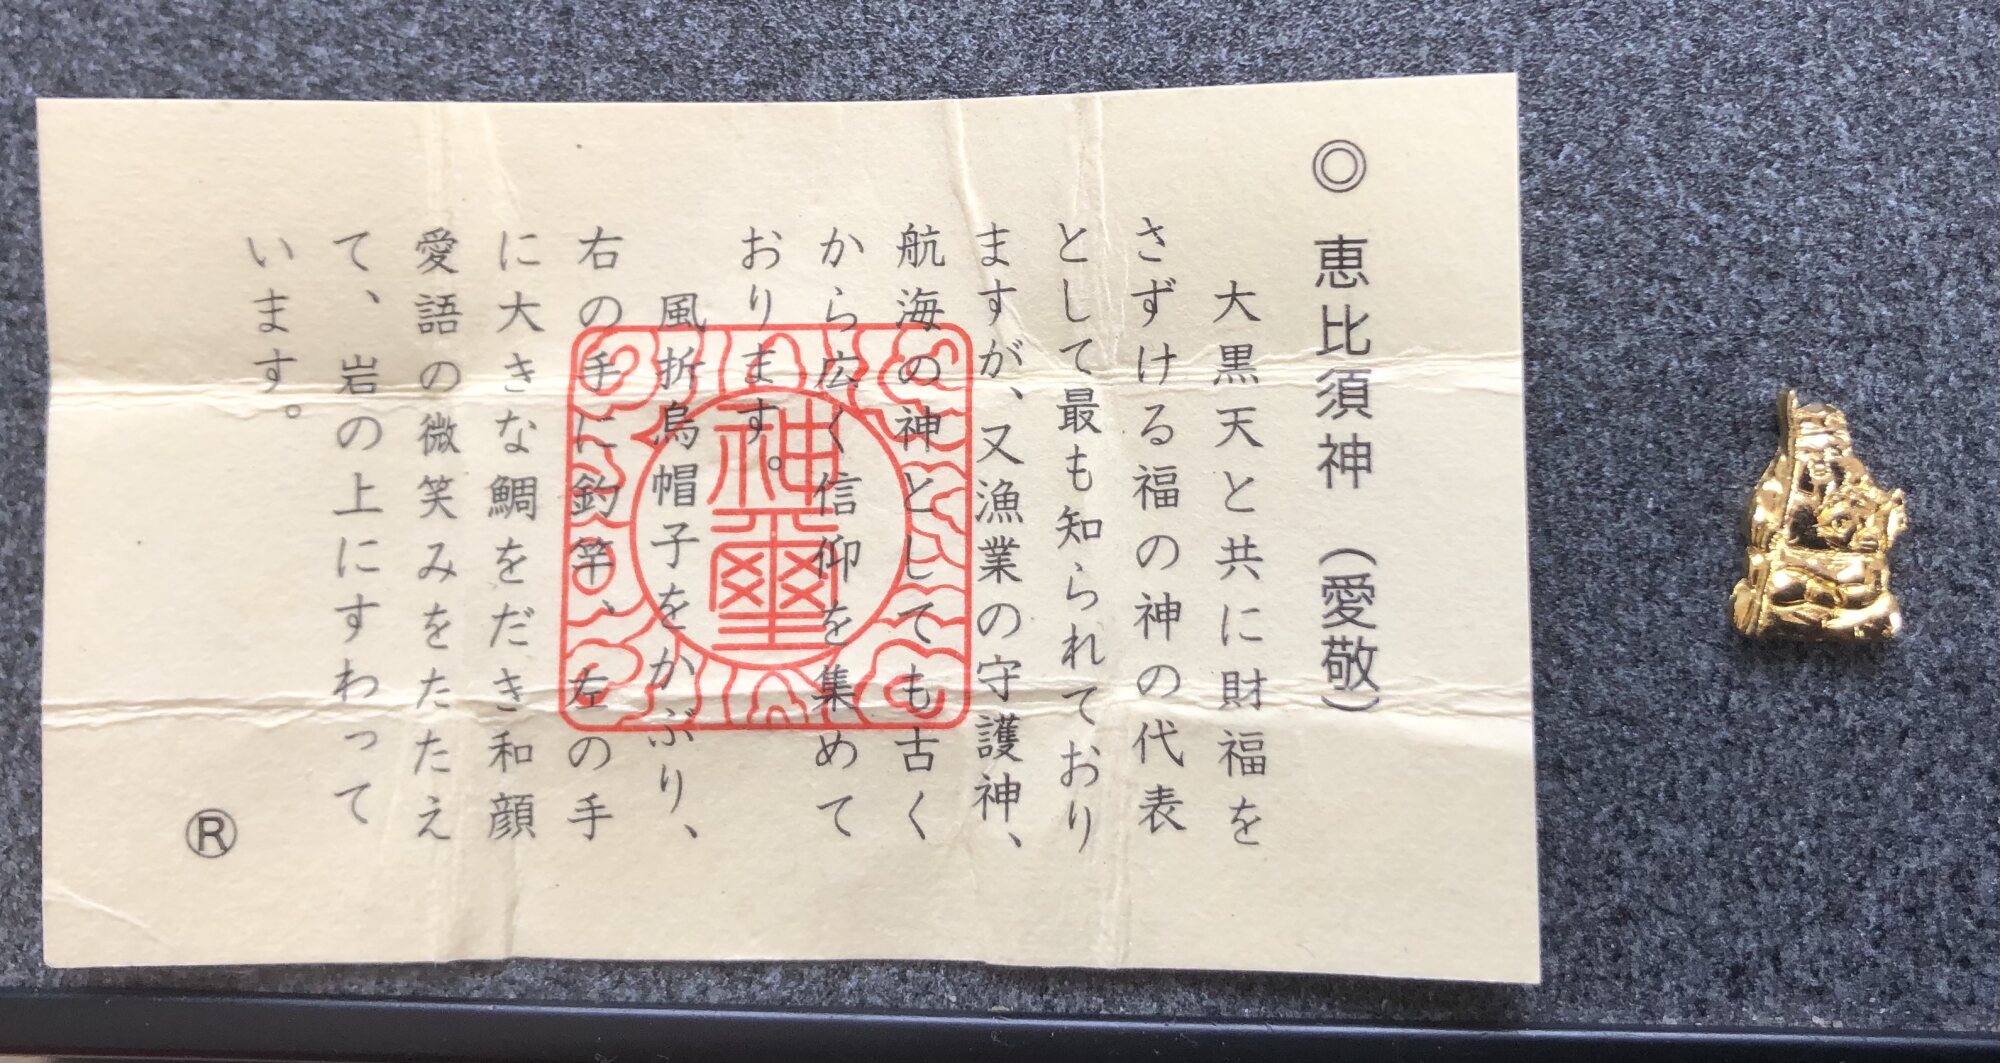 ◎ 恵比須神（愛敬）
大黒天と共に財福を
さずける福の神の代表
として最も知られており
ますが、又漁業の守護神、
航海の神としても古く
から広く信仰を集めて
おります。
風折烏帽子をかぶり、
右の手に釣竿、左の手
に大きな鯛をだき和顔
愛語の微笑みをたたえ
て、岩の上にすわって
います。
Ⓡ
神璽